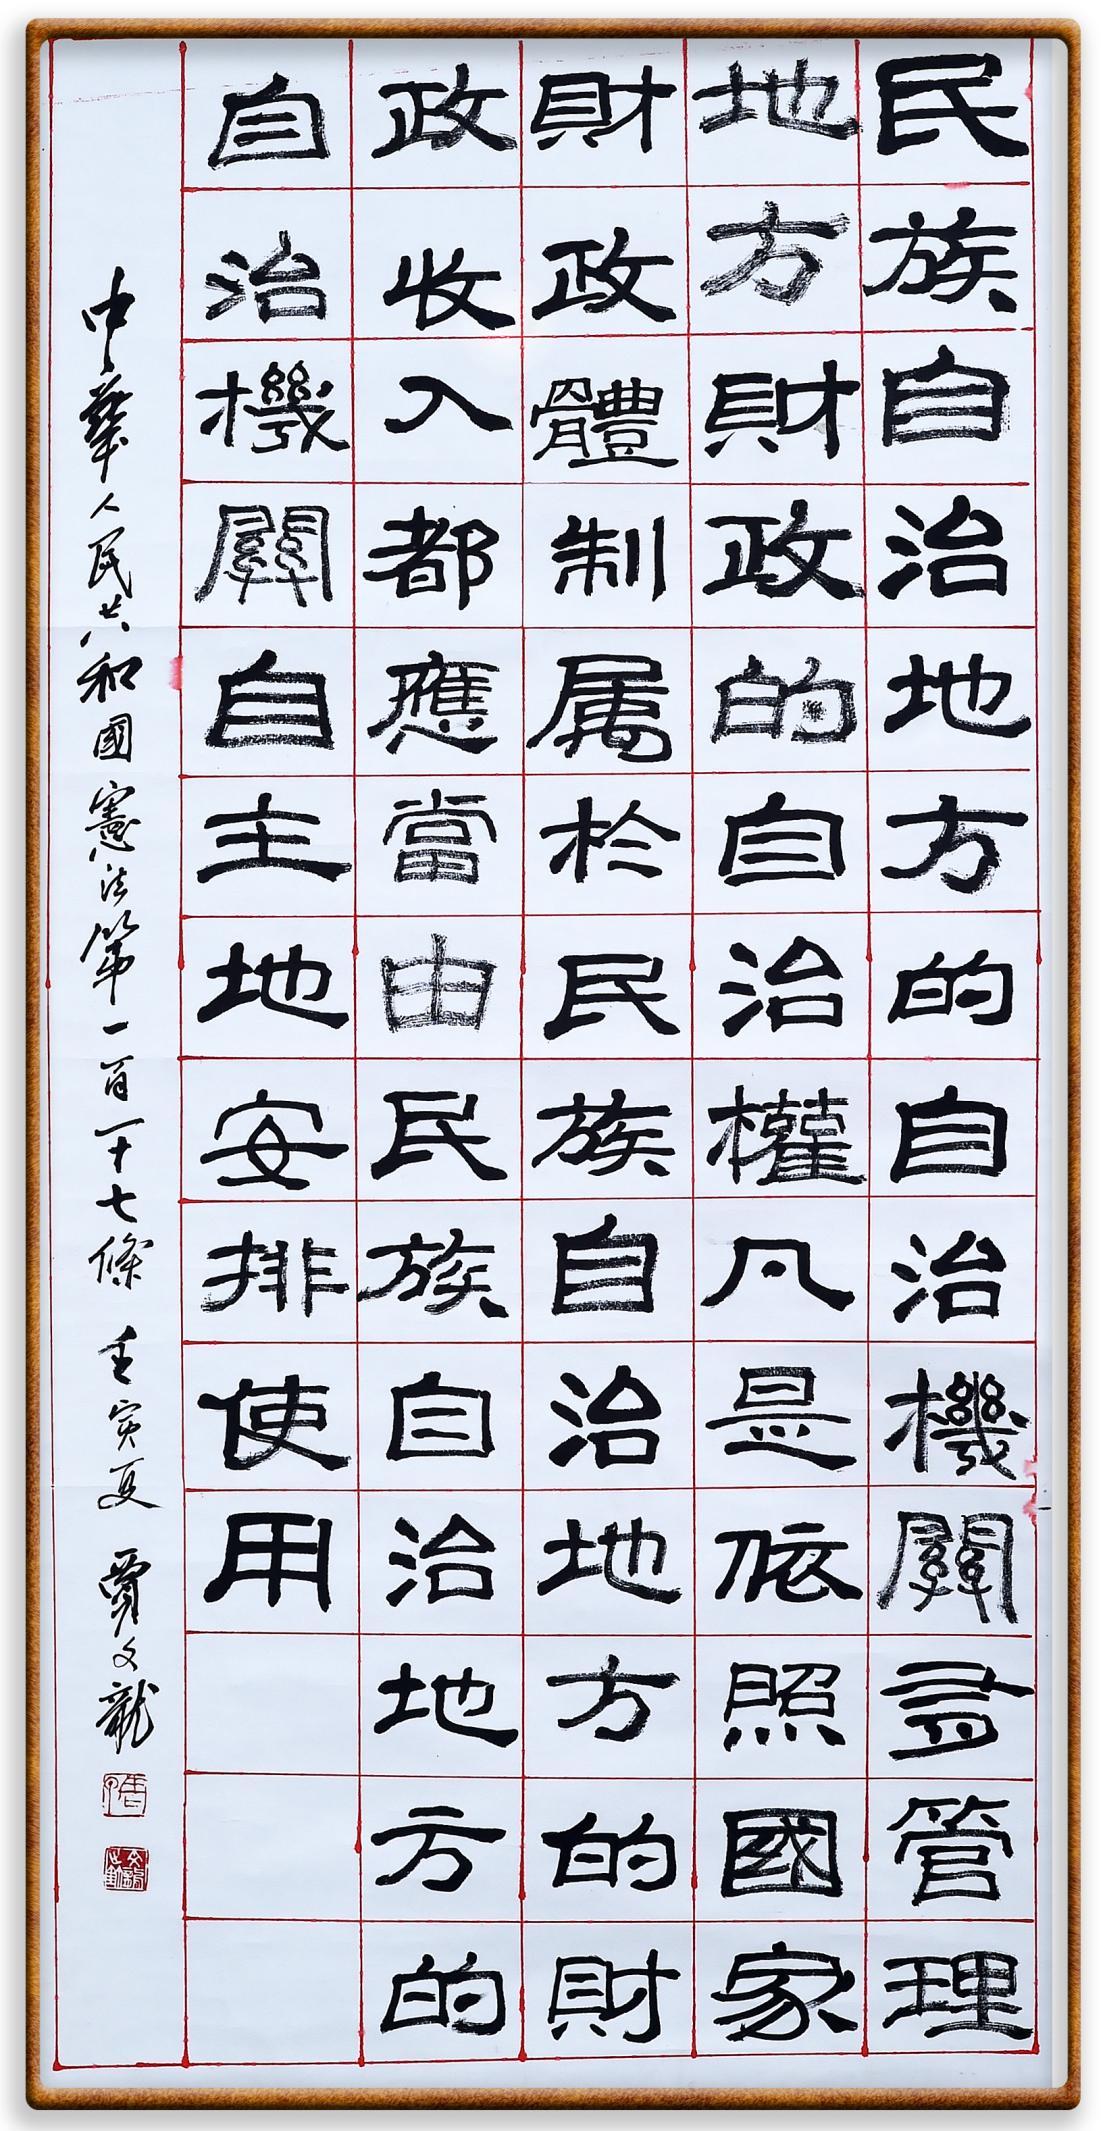 民族自治地方的自治機關有管理
地方財政的自治權凡是依照國家
財政體制属於民族自治地方的財
政收入都應當由民族自治地方的
自治機關自主地安排使用
中華人民共和國憲法第一百一十七條 壬寅夏 賈文龍